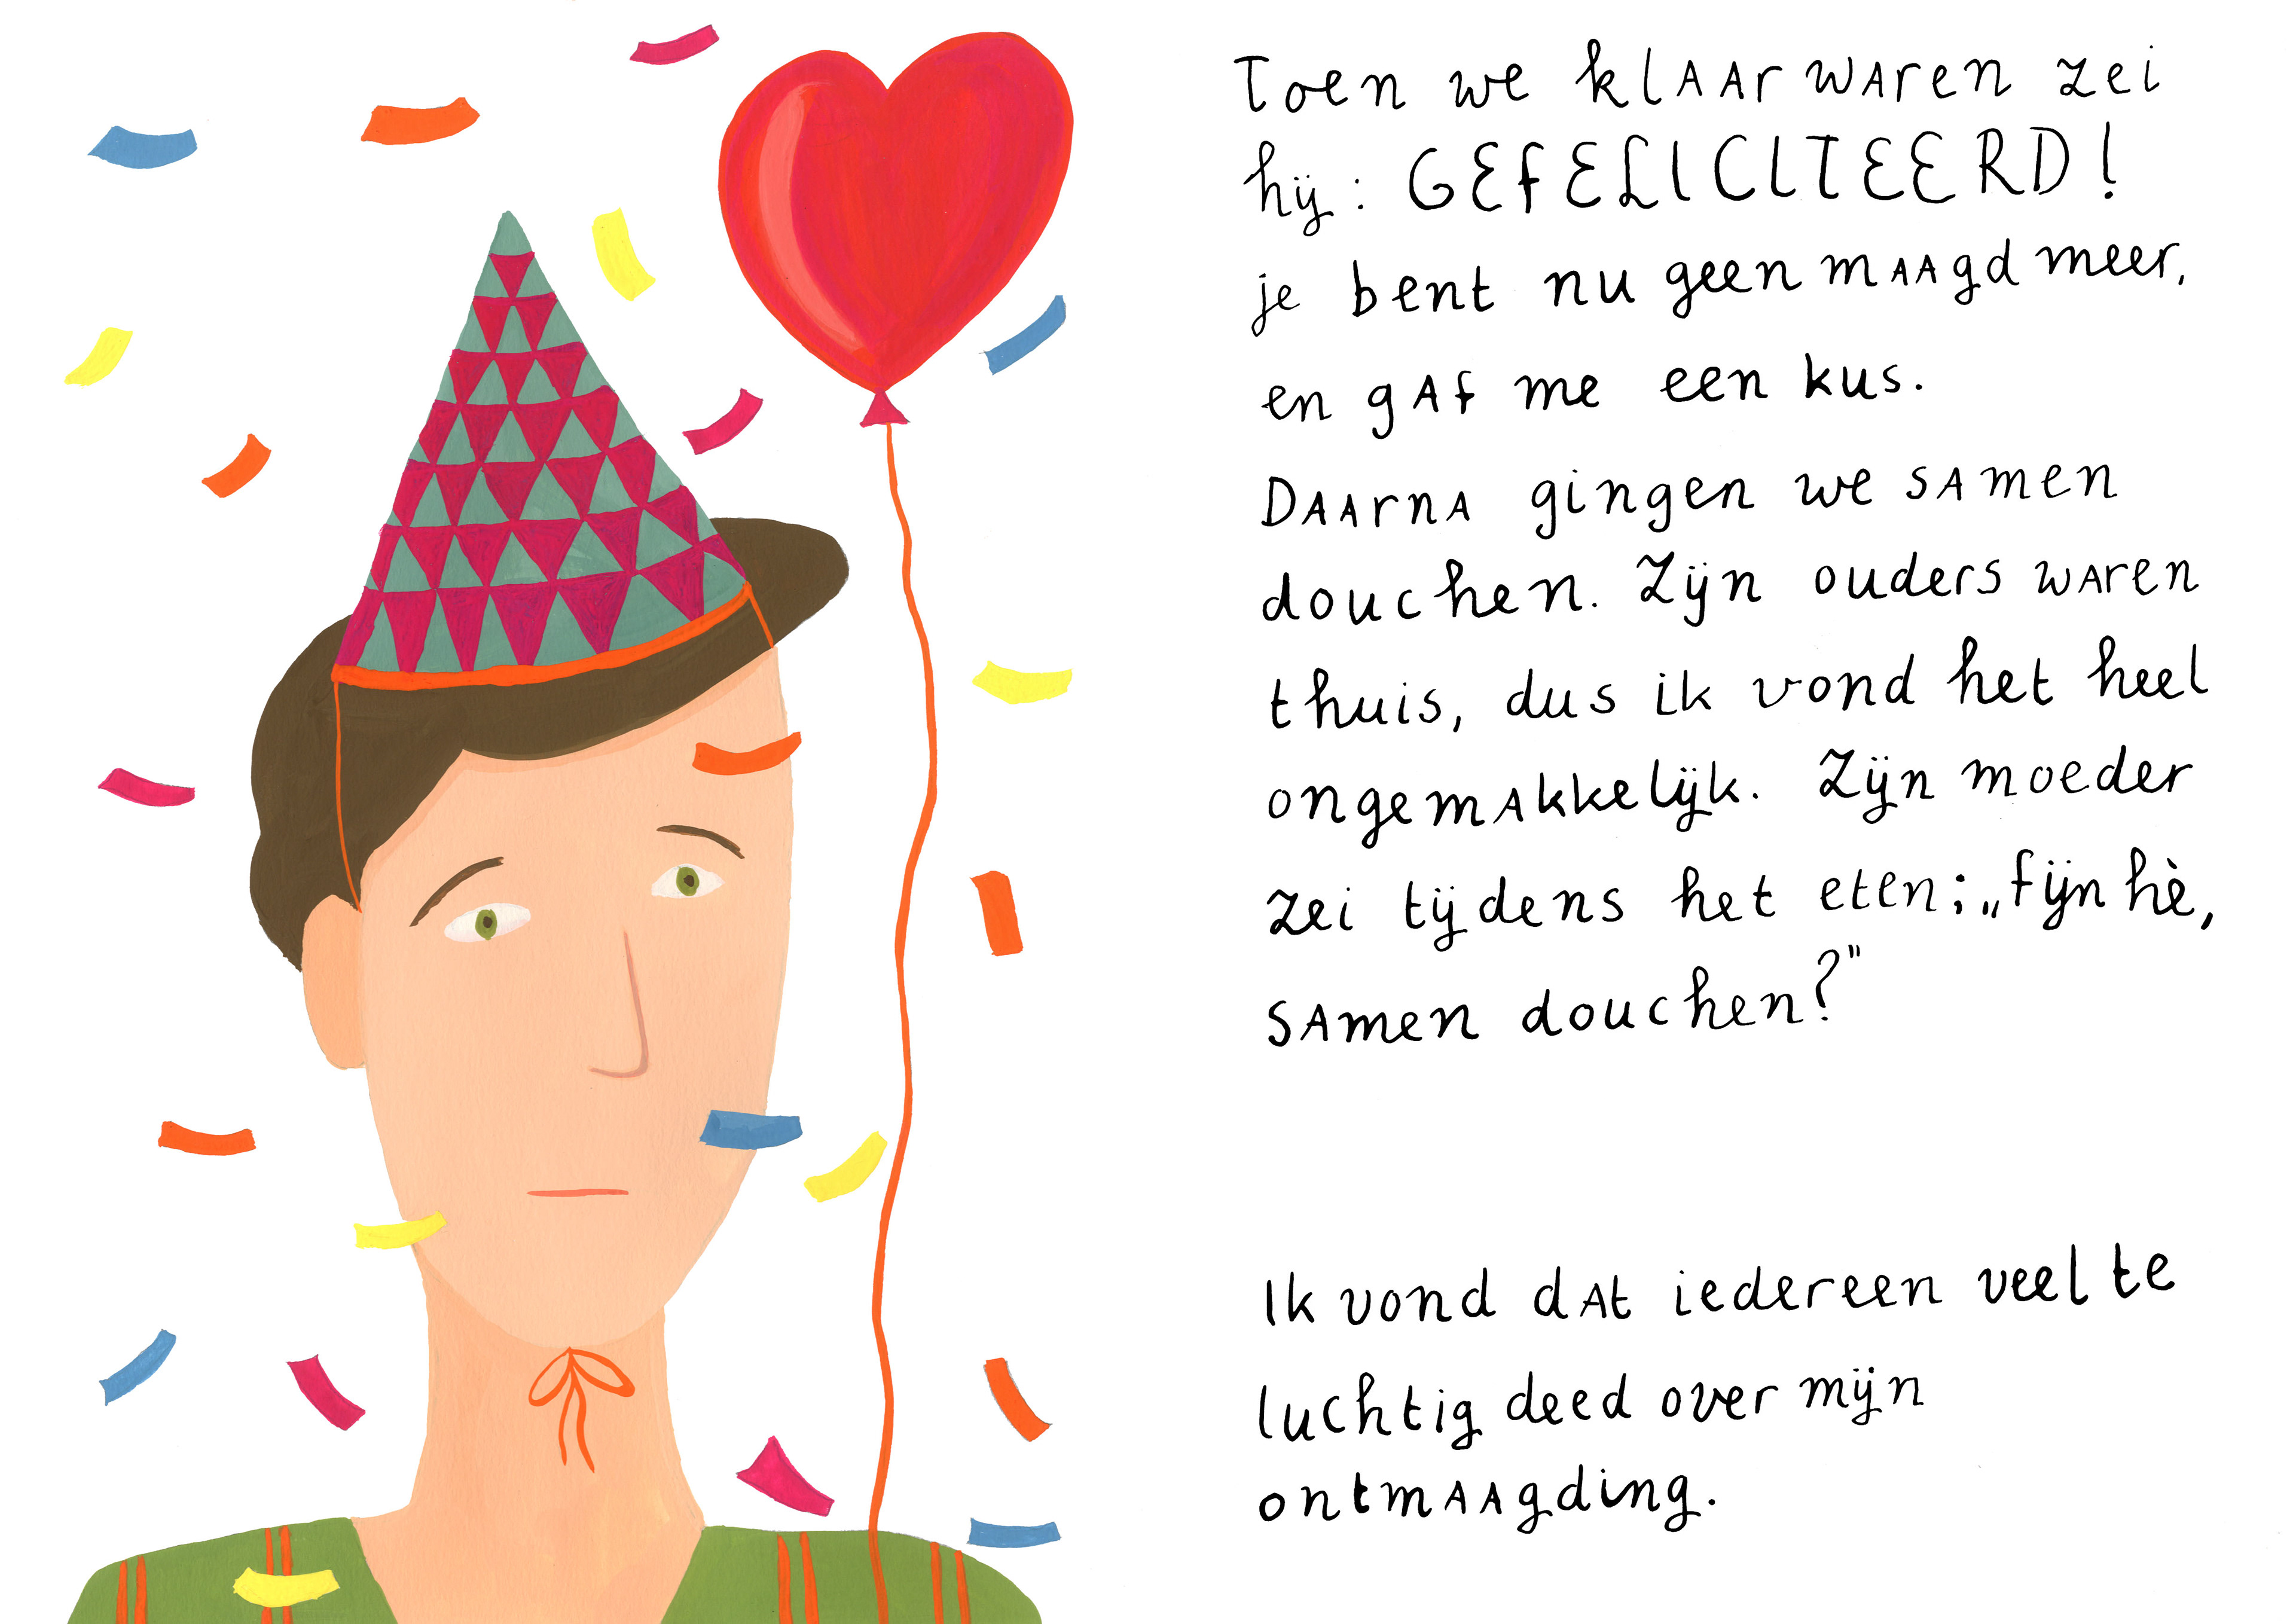 Toen we klaar waren zei
hij: GEFELICITEERD!
je bent nu geen maagd meer,
en gaf me een kus.
Daarna gingen we samen
douchen. Zijn ouders waren
thuis, dus ik vond het heel
ongemakkelijk. Zijn moeder
zei tijdens het eten; „fijn hè,
samen douchen?"
Ik vond dat iedereen veel te
luchtig deed over mijn
ontmaagding.